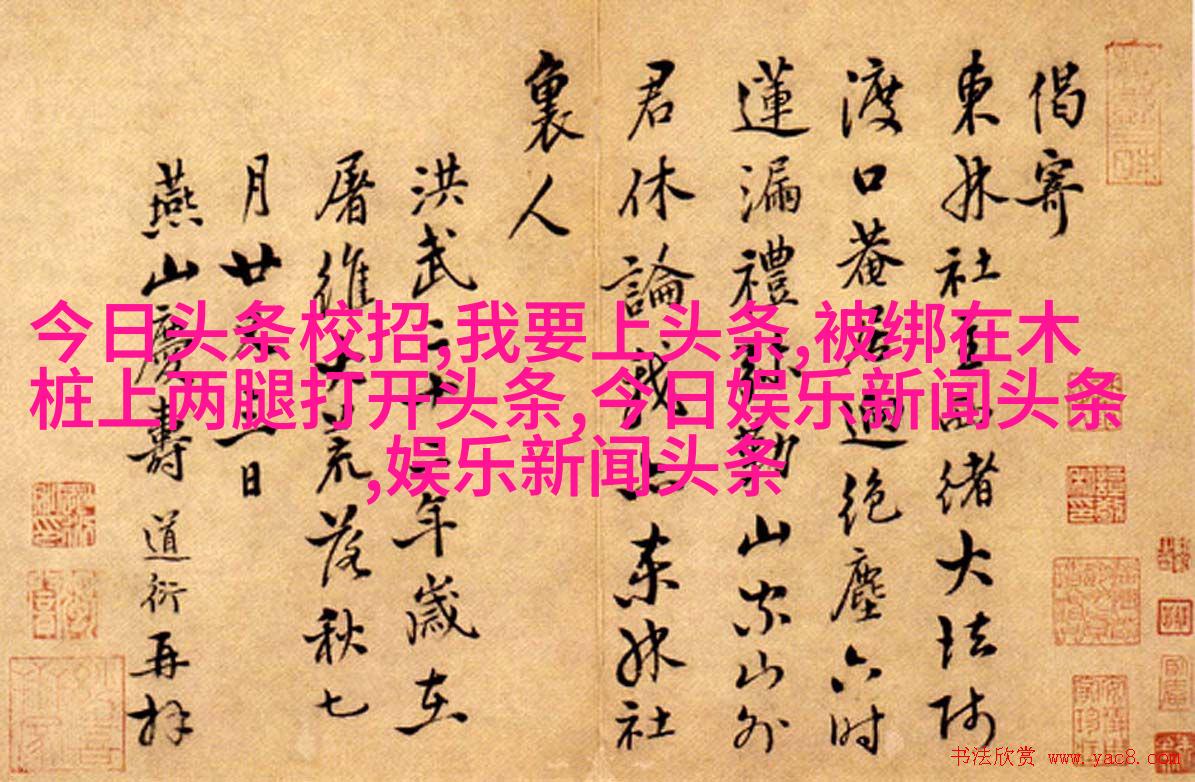 偈寄
東林社緒大法師
渡口菴居迥絕塵六時
蓮漏禮弥勤山家山外
君休論東林社
裏人
洪武二十二年歲在
屠維大荒落秋七
月廿日
燕山慶壽道衍再拜
今日头条校招,我要上头条,被绑在木
桩上两腿打开头条,今日娱乐新闻头条
,娱乐新闻头条
书法欣赏 www.yac8.com